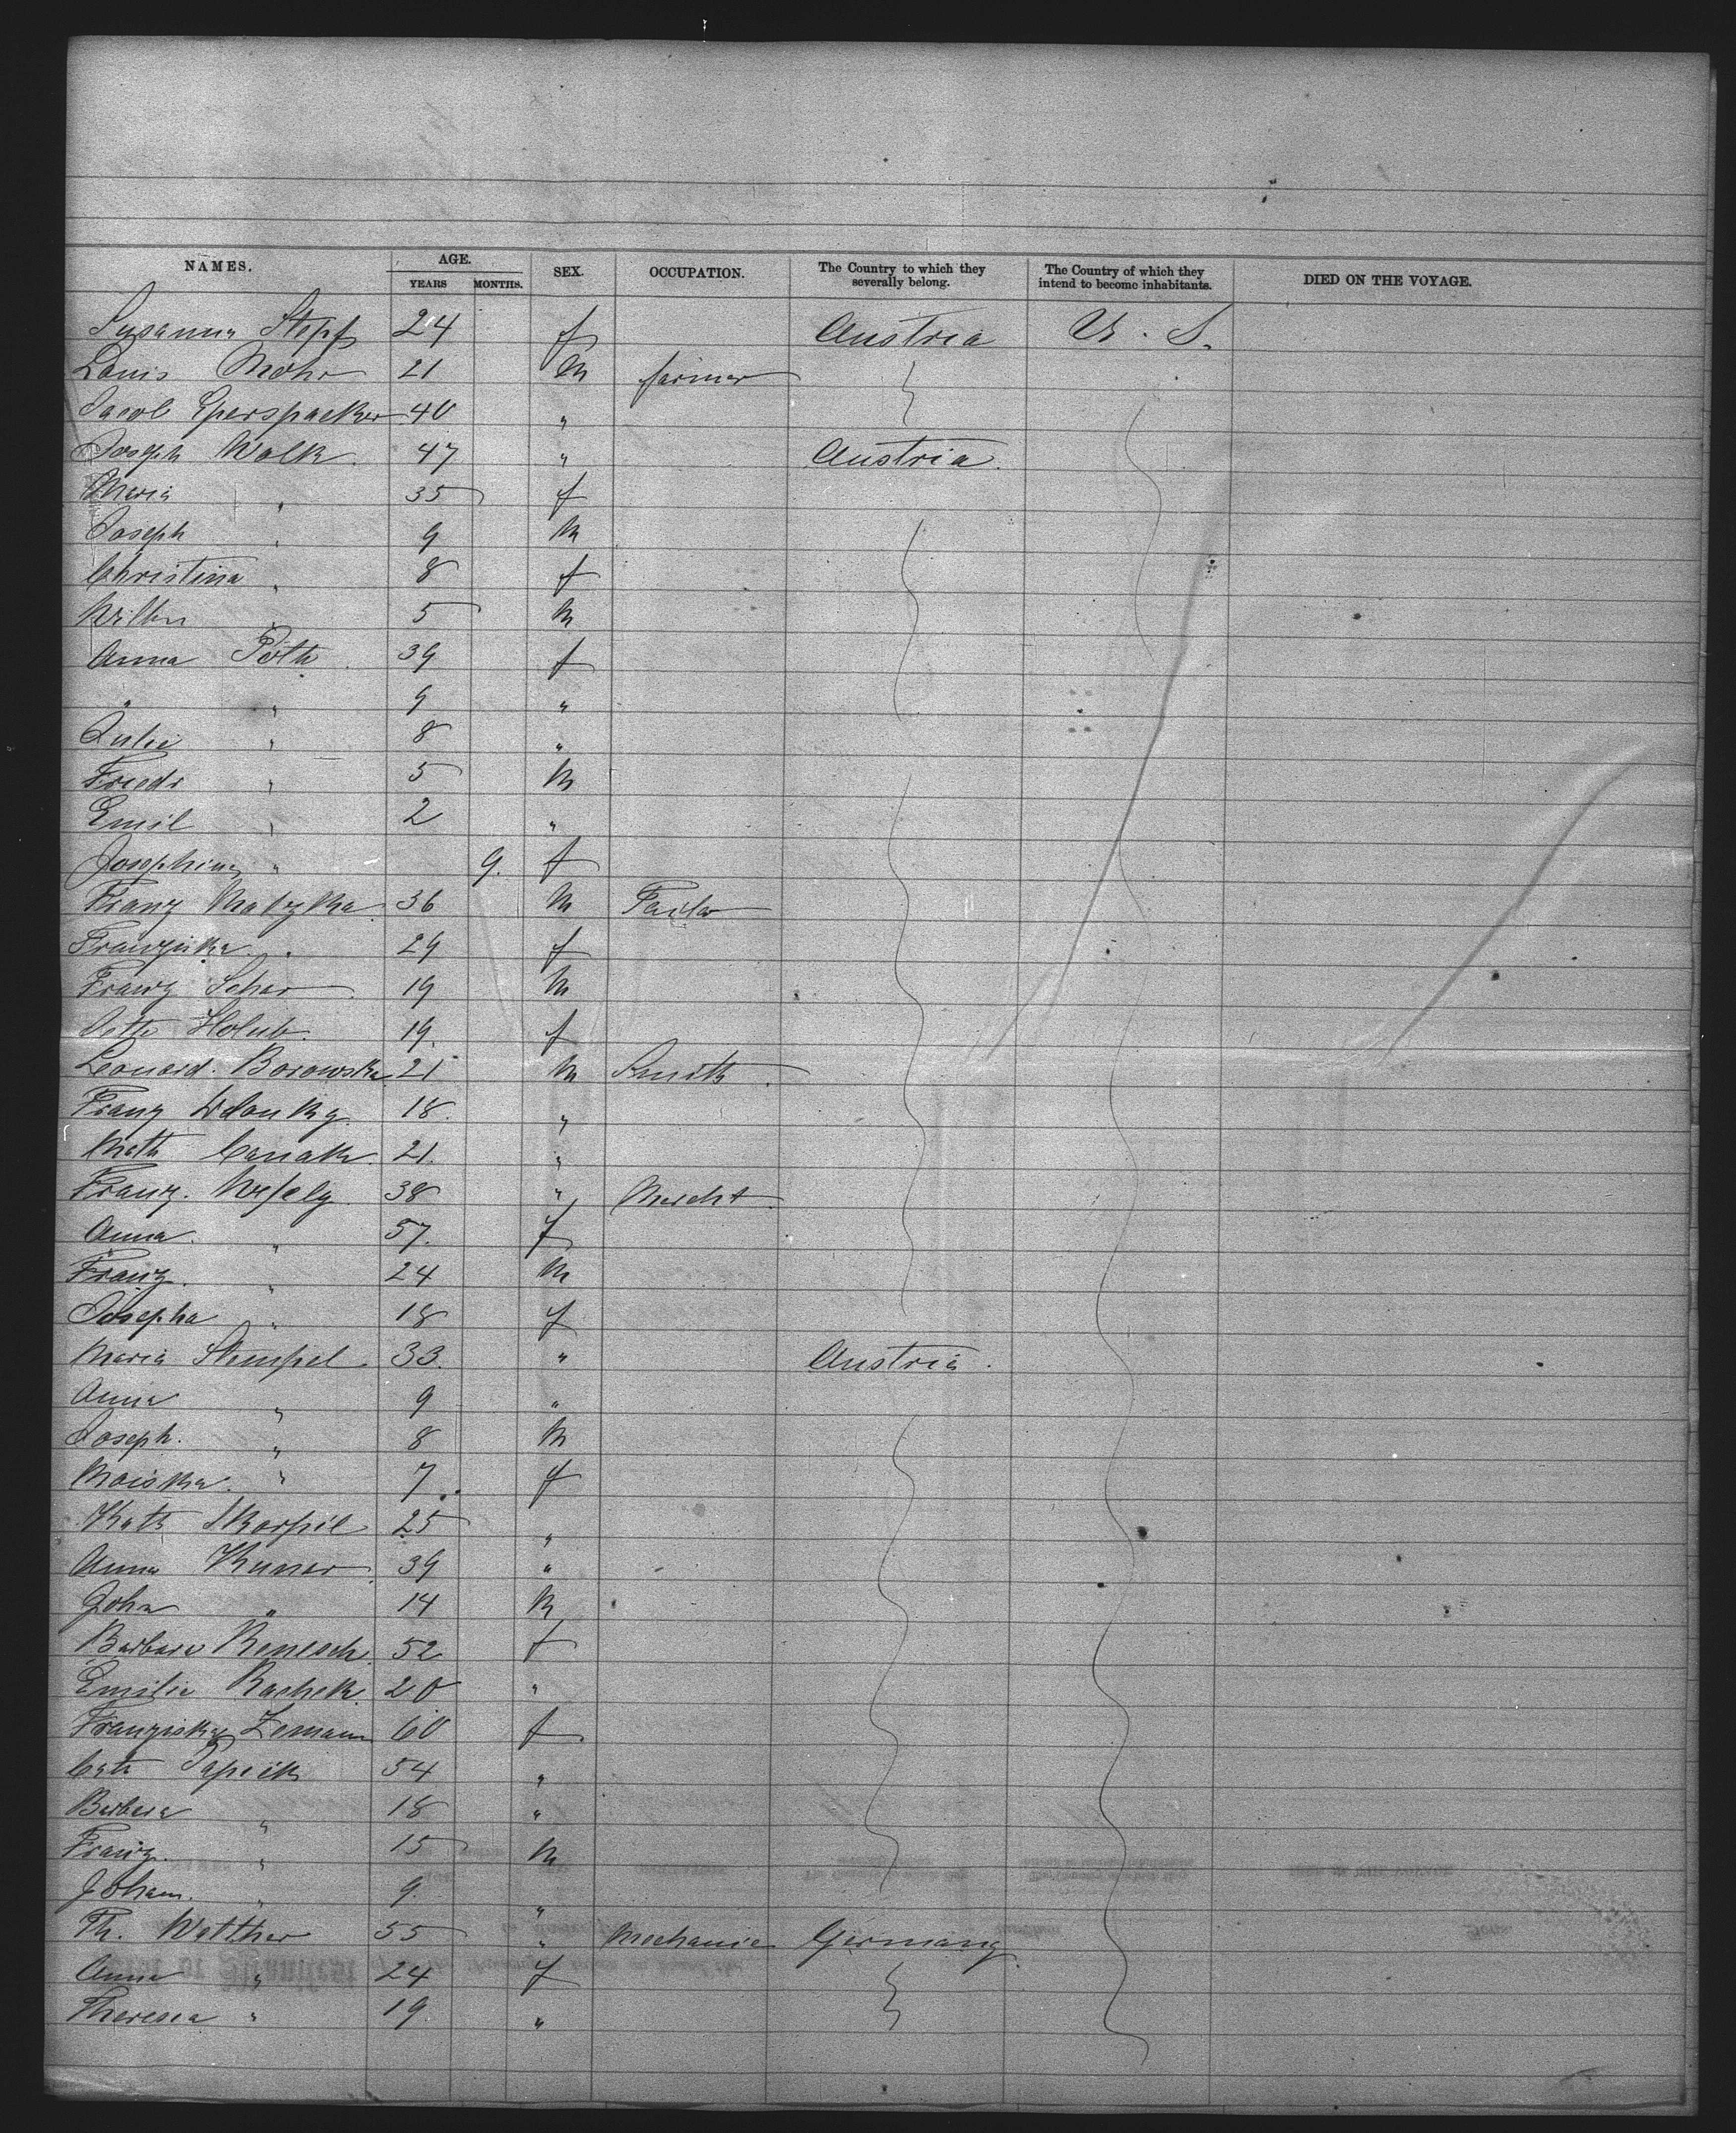 NAMES. AGE. YEARS MONTHS. SEX. OCCUPATION. The Country to which they severally belong. The Country of which they intend to become inhabitants. DIED ON THE VOYAGE.
Susanna Stepf 24 f Austria U. S.
Louis Mohr 21 m farmer
Jacob Eperspacker 40 "
Joseph Wolk 47 " Austria.
Maria " 35 f
Joseph " 9 m
Christina " 8 f
5 m
Anna Poth 39 f
" " 9 "
Julie " 8 "
Friedr " 5 m
Emil " 2 "
Josephine " 9. f
Franz Matzka 36 m Tailor
Franziska " 29 f
Franz 19 m
Holub 19. f
Leonard. Borowska 21 m Smith
Franz 18. "
Math 21. "
Franz. Wesely 38 " Mercht
Anna. " 57. f
Franz. " 24 m
Josepha " 18 f
Maria Stempel. 33. " Austria.
Anna " 9 "
Joseph. " 8 m
" 7 f
Kath Skarpil 25 "
Anna Kuner 39 "
John " 14 m
Barbara 52 f
Emilie 20 "
Franziska Zemann 60 f
Cath 54 "
Barbara " 18 "
Franz. " 15 m
Johann. " 9. "
Th. Walther 55 " Mechanic Germany
Anna " 24 f
Theresia " 19. "